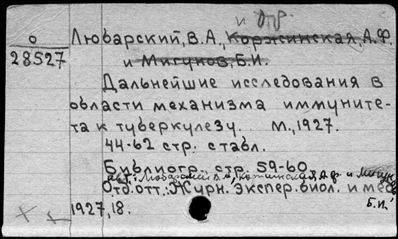 и др.
о Любарский, В.А., Коржинская, А.Ф.
28527 и Мигунов, Б.И.
Дальнейшие исследования в
области механизма иммуните-
та к туберкулезу. М., 1927.
44-62 стр. с табл.
Библиогр. стр. 59-60
авт.: Любарский В.А., А.Ф. и Мигунов
Отд. отт.: Журн. Экспер. биол. и мед
Б.И.
1927, 18.